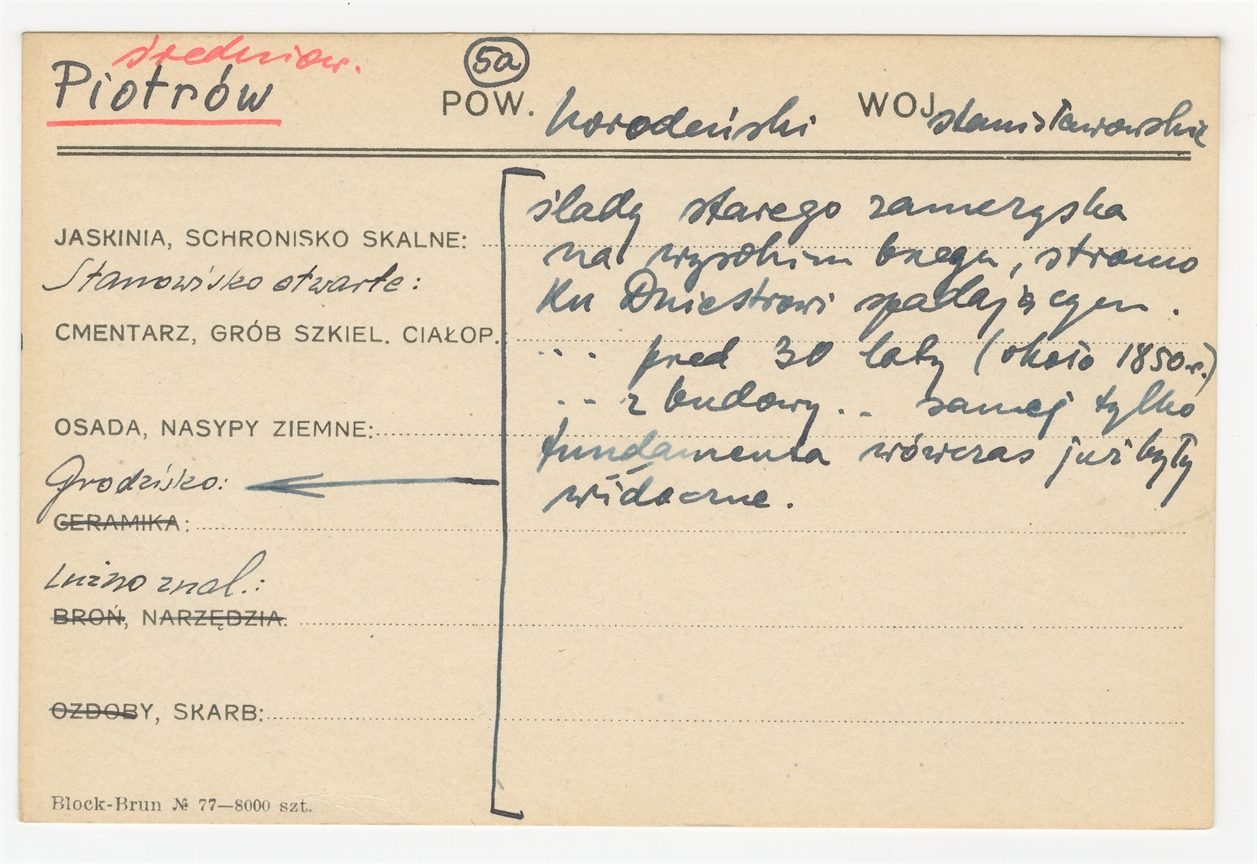 średniow.
Piotrów
5a
POW. horodeński WOJ. stanisławowskie
JASKINIA, SCHRONISKO SKALNE:
Stanowisko otwarte:
CMENTARZ, GRÓB SZKIEL. CIAŁOP.
OSADA, NASYPY ZIEMNE:
Grodzisko:
CERAMIKA:
Luźno znal.:
BROŃ, NARZĘDZIA:
OZDOBY, SKARB:
ślady starego zameczyska
na wysokim brzegu, stromo
ku Dniestrowi spadającym.
... pred 30 laty (około 1850 r.)
.. z budowy .. samej tylko
fundamenta wówczas już były
widoczne.
Block-Brun № 77—8000 szt.